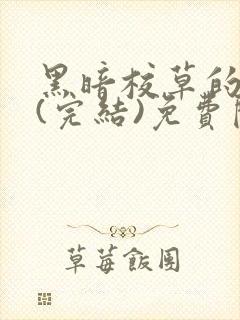 黑暗校草的
(完結)免費
草莓飯團